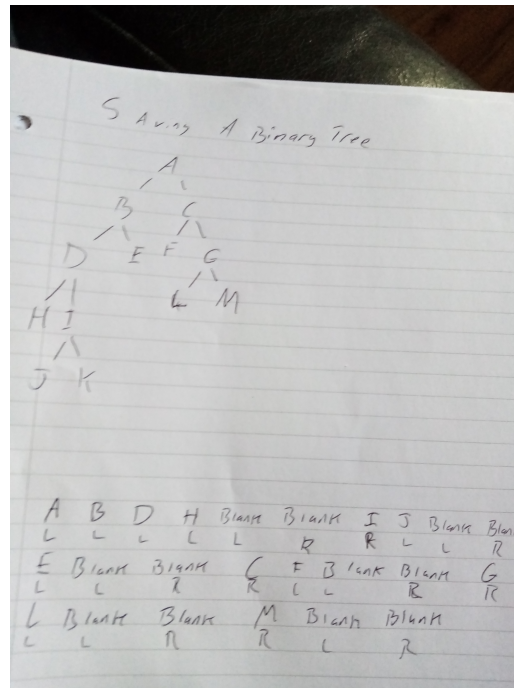 SAving A Binary Tree
A
B C
D E F G
H I L M
J K
A B D H Blank Blank I J Blank Blan
L L L L L R R L L R
E Blank Blank C F Blank Blank G
L L R R L L R R
L Blank Blank M Blank Blank
L L R R L R